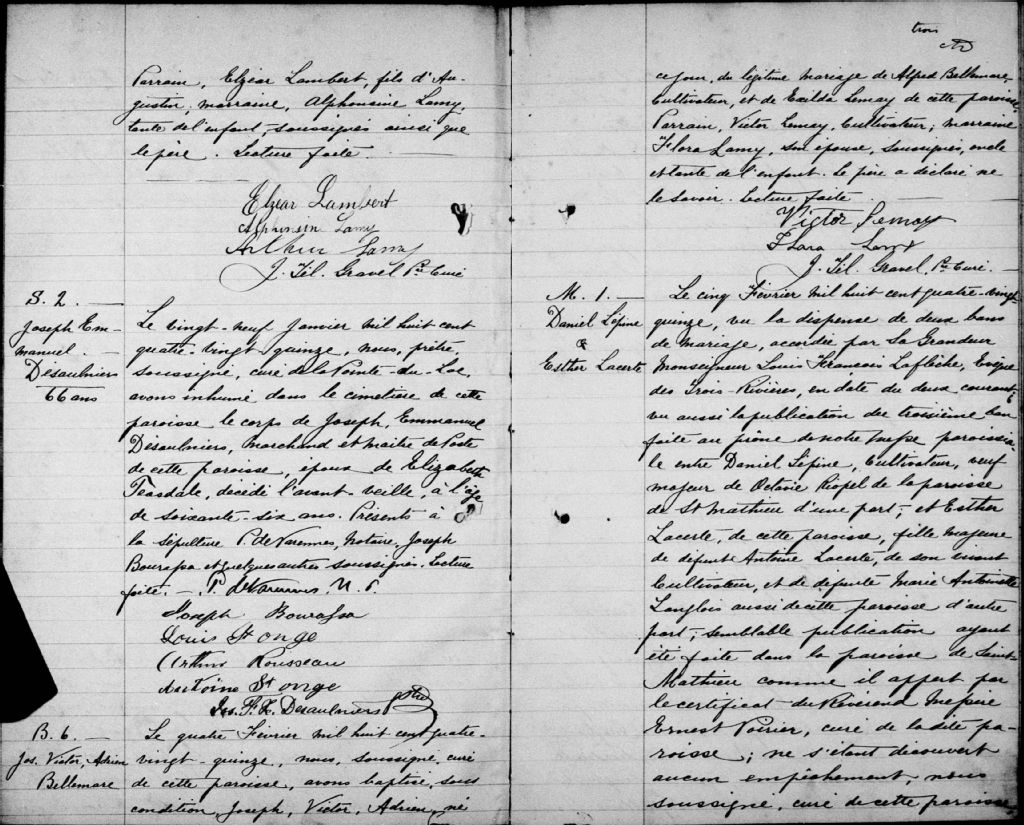 Parrain, Elzéar Lambert, fils d'Au-
gustin, marraine, Alphonsine Lamy,
tante de l'enfant, soussignés ainsi que
le père. Lecture faite.
Elzear Lambert
Alphonsin Lamy
Arthur Lamy
J. Fél. Gravel Ptre Curé
S. 2.
Joseph Em-
manuel
Désaulniers
66 ans
Le vingt-neuf Janvier mil huit cent
quatre-vingt quinze, nous, prêtre,
soussigné, curé de la Pointe-du-Lac
avons inhumé dans le cimetière de cette
paroisse le corps de Joseph, Emmanuel
Désaulniers, Marchand et maître de Poste
de cette paroisse, époux de Elizabeth
Teasdale, décédé l'avant-veille, à l'âge
de soixante-six ans. Présents à
la sépulture P. de Varennes, Notaire, Joseph
Bourassa et quelques autres soussignés. Lecture
faite. P. de Varennes N. P.
Joseph Bourassa
Louis St onge
Arthur Rousseau
Antoine St onge
Jos. F. L. Desaulniers Ptre
B. 6.
Jos. Victor, Adrien
Bellemare
Le quatre Février mil huit cent quatre-
vingt-quinze, nous, soussigné, curé
de cette paroisse, avons baptisé, sous
condition, Joseph, Victor, Adrien, né
trois
ce jour, du légitime mariage de Alfred Bellemare,
Cultivateur, et de Exilda Lemay de cette paroisse.
Parrain, Victor Lemay, Cultivateur; marraine
Flora Lamy, son épouse, soussignés, oncle
et tante de l'enfant. Le père a déclaré ne
le savoir. Lecture faite
Victor Lemay
Flora Lamy
J. Fél. Gravel Ptre Curé.
M. 1.
Daniel Lépine
&
Esther Lacerte
Le cinq Février mil huit cent quatre-vingt
quinze, vu la dispense de deux bans
de mariage, accordée par Sa Grandeur
Monseigneur Louis François Laflèche, Evêque
des Trois-Rivières, en date du deux courant;
vu aussi la publication du troisième ban
faite au prône de notre messe paroissia-
le entre Daniel Lépine, Cultivateur, veuf
majeur de Octavie Riopel de la paroisse
de St Mathieu d'une part, et Esther
Lacerte, de cette paroisse, fille majeure
de défunt Antoine Lacerte, de son vivant
Cultivateur, et de défunte Marie Antoinette
Langlois aussi de cette paroisse d'autre
part; semblable publication ayant
été faite dans la paroisse de Saint-
Mathieu comme il appert par
le certificat du Révérend Messire
Ernest Poirier, curé de la dite pa-
roisse; ne s'étant découvert
aucun empêchement, nous
soussigné, curé de cette paroisse